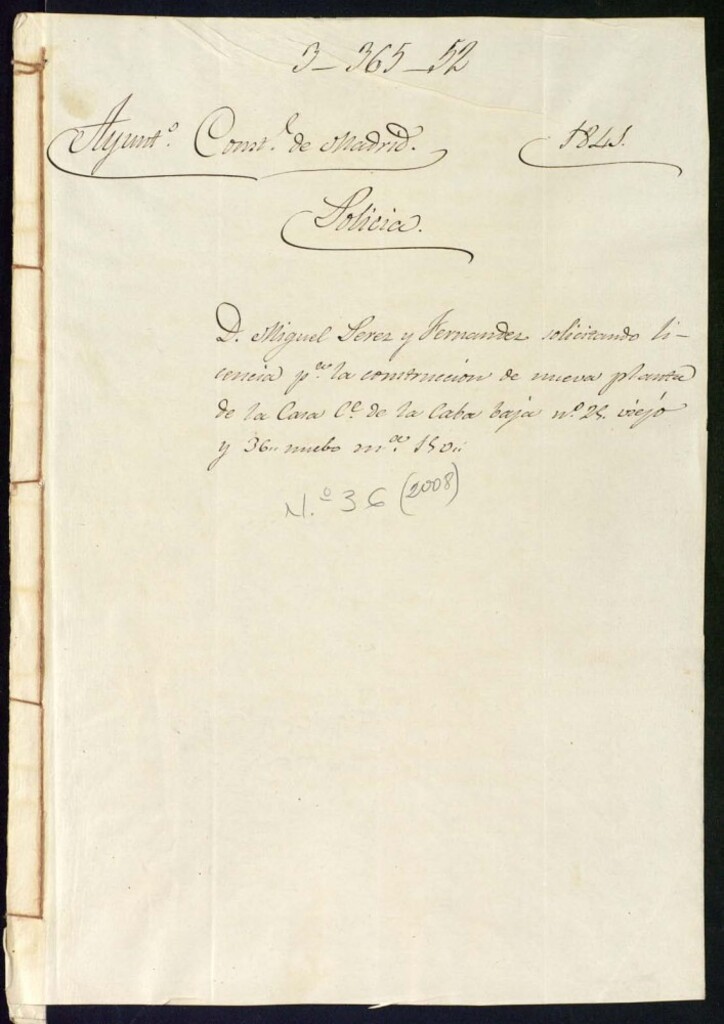 3-365-52
Ayunt.º Const.l de Madrid. 1841.
Policia.
D. Miguel Perez y Fernandez solicitando li-
cencia p.a la construccion de nueva planta
de la Casa C.e de la Caba baja n.º 25 viejo
y 36 nuebo m.a 150
N.º 36 (2008)